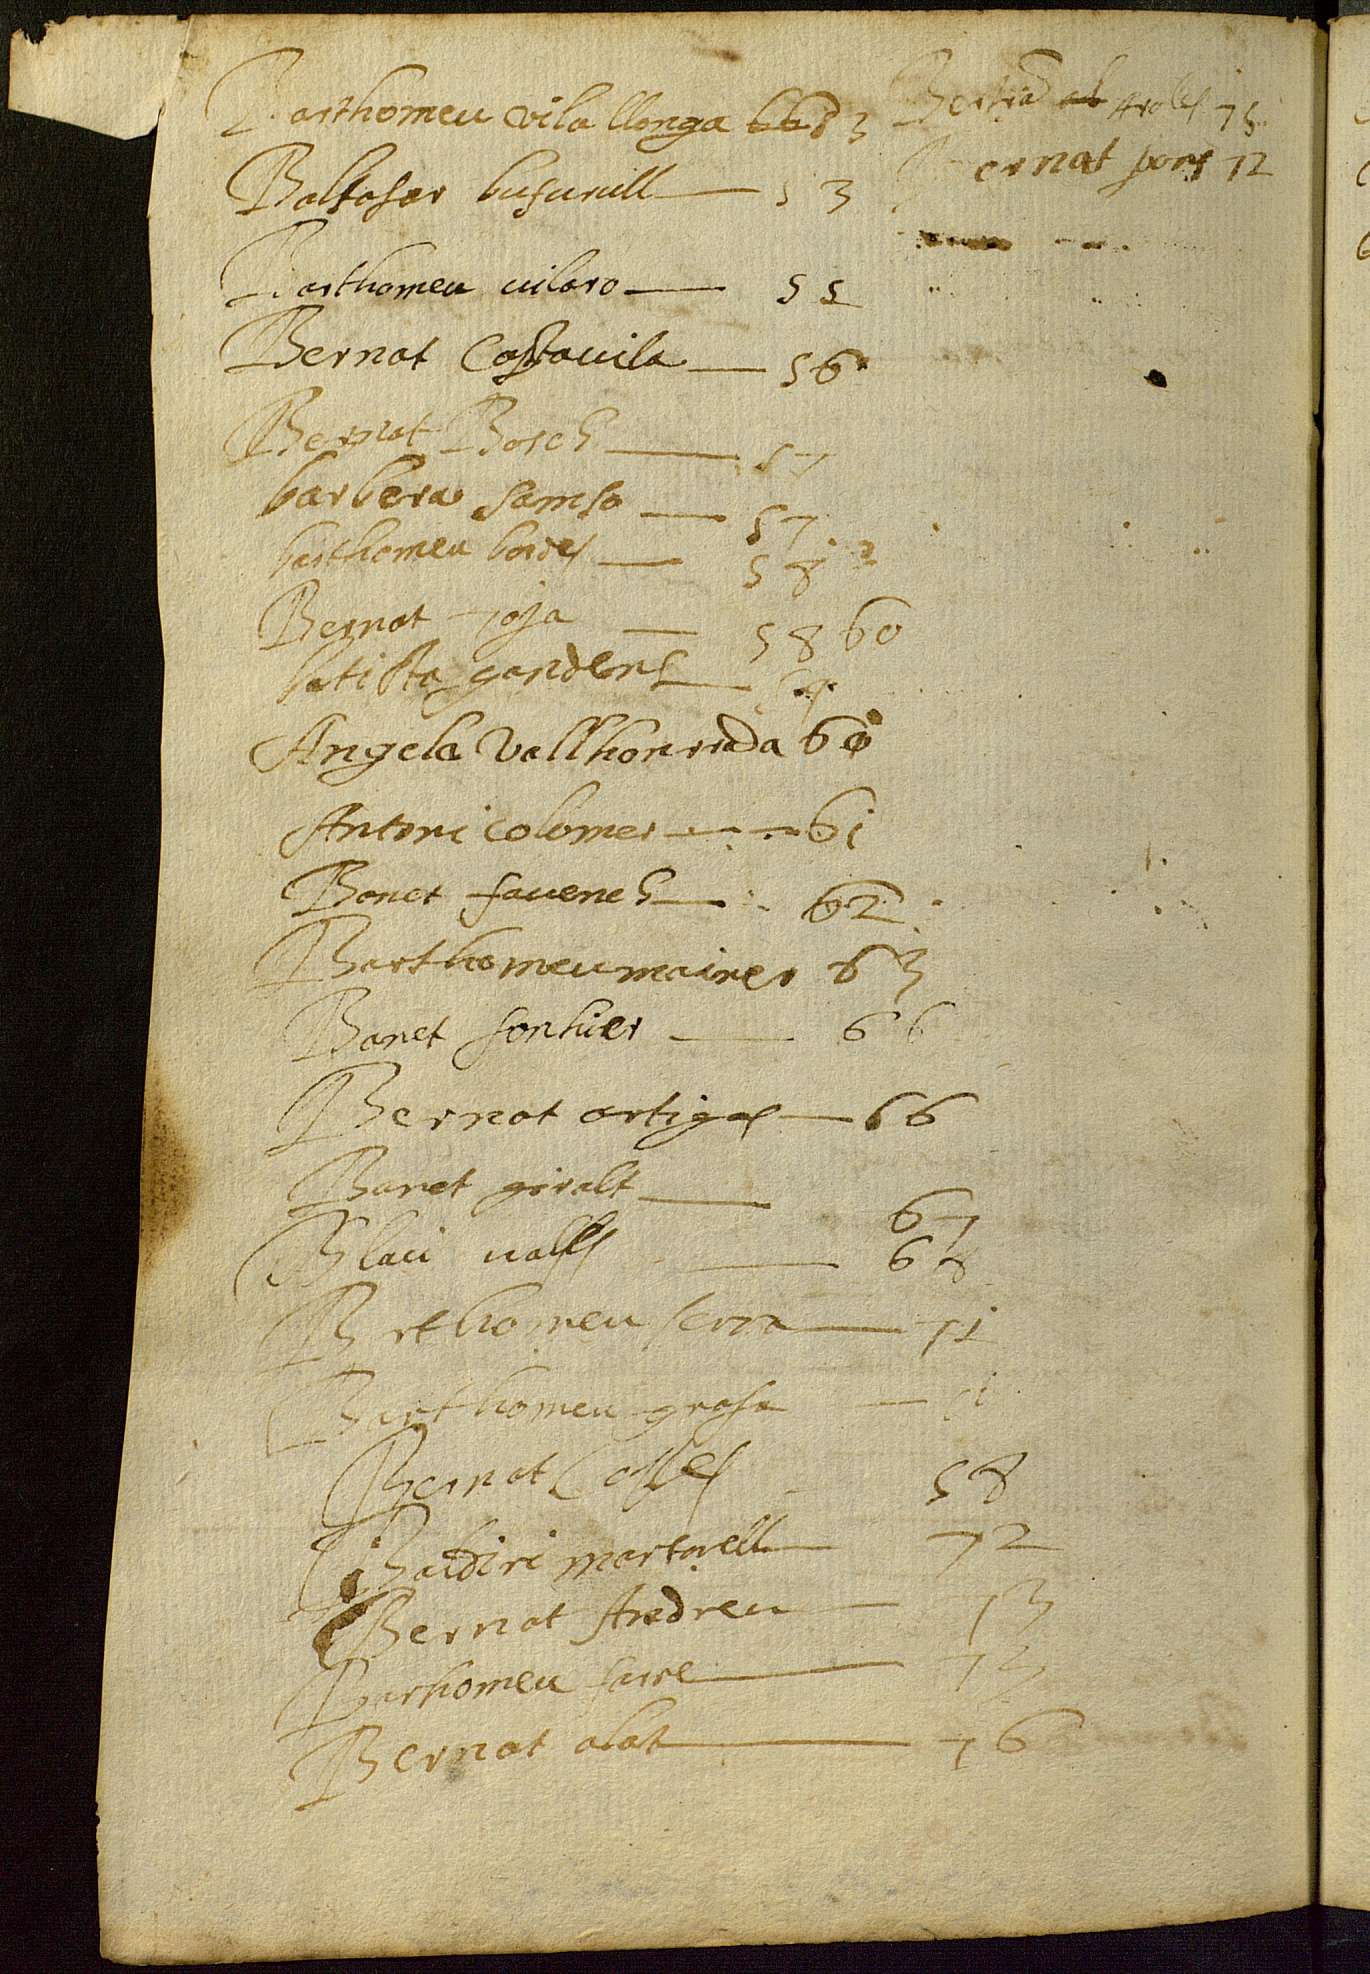 Barthomeu vila llonga 3
Baltasar busurull 53
Barthomeu uilaro 55
Bernat Costauila 56
Bernat Bosch 57
barbera samso 57
barthomeu bories 58
Bernat roja 58 60
batista gandens
Angela Vallhonrrada 60
Antoni colomer 61
Bonet fauench 62
Barthomeu mairer 63
Banet 66
Bernat artigas 66
Banet giralt 67
Blaii ualls 68
Barthomeu serra 71
Barthomeu grosa
Bernat Casses 58
Baidiri martorell 72
Bernat Andreu 73
Barhomeu farre 73
Bernat abat 76
75
Bernat pons 72